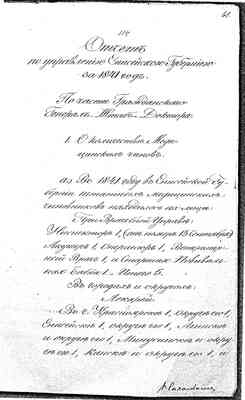 61.
Отчетъ
по управленію Енисейскою Губерніею
за 1841 годъ.
По части Гражданскаго
Генералъ Штабъ Доктора.
1. О количествѣ Меди-
цинскихъ чиновъ.
Въ 1841 году въ Енисейской Гу-
берніи штатныхъ медицинскихъ
чиновниковъ находилось на лицо:
При Врачебной Управѣ:
Инспекторъ 1,
Акушеръ 1, Операторъ 1, Ветеринар-
ный Врачъ 1, и Старшая Повиваль-
ная Бабка 1. Итого 5.
Въ городахъ и округахъ:
Лекарей:
Въ г. Красноярскѣ 1, округѣ его 1,
Енисейскѣ 1, округѣ его 1, Ачинскѣ
и округѣ его 1, Минусинскѣ и окру-
гѣ его 1, Канскѣ и округѣ его 1, и